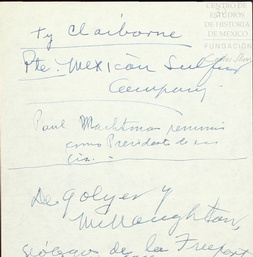 CENTRO DE
ESTUDIOS
DE HISTORIA
DE MÉXICO
FUNDACIÓN
Ty Claiborne
Pte. Mexican Sulfur
Company
Paul
como Presidente de
cia.
De Golyer y
McNaughton,
geólogos de la Freeport